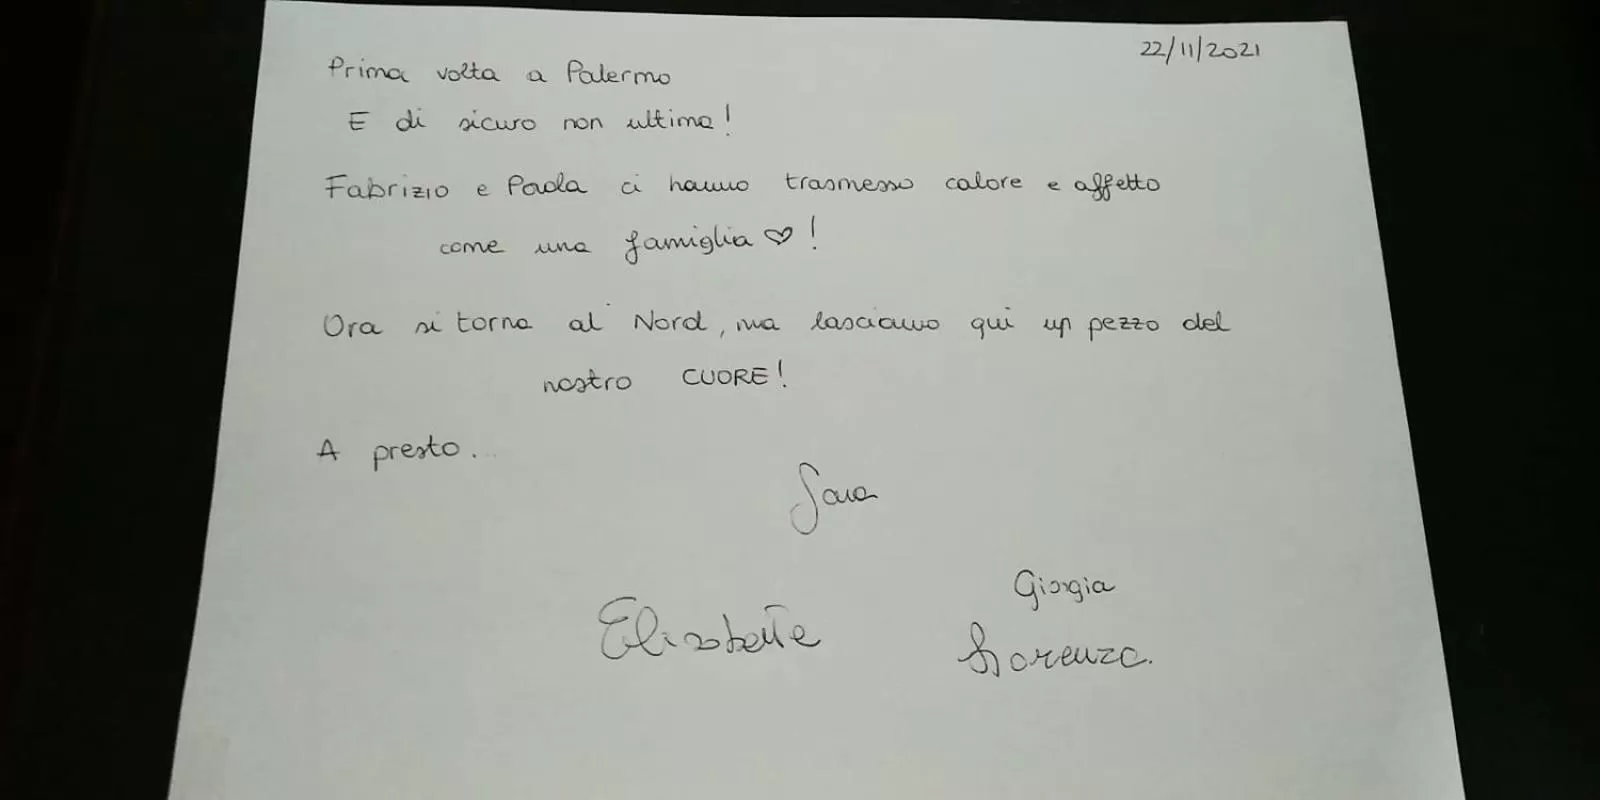 22/11/2021
Prima volta a Palermo
E di sicuro non ultima!
Fabrizio e Paola ci hanno trasmesso calore e affetto
come una famiglia ♡!
Ora si torna al Nord, ma lasciamo qui un pezzo del
nostro CUORE!
A presto...
Sara
Giorgia
Elisabetta
Lorenzo.